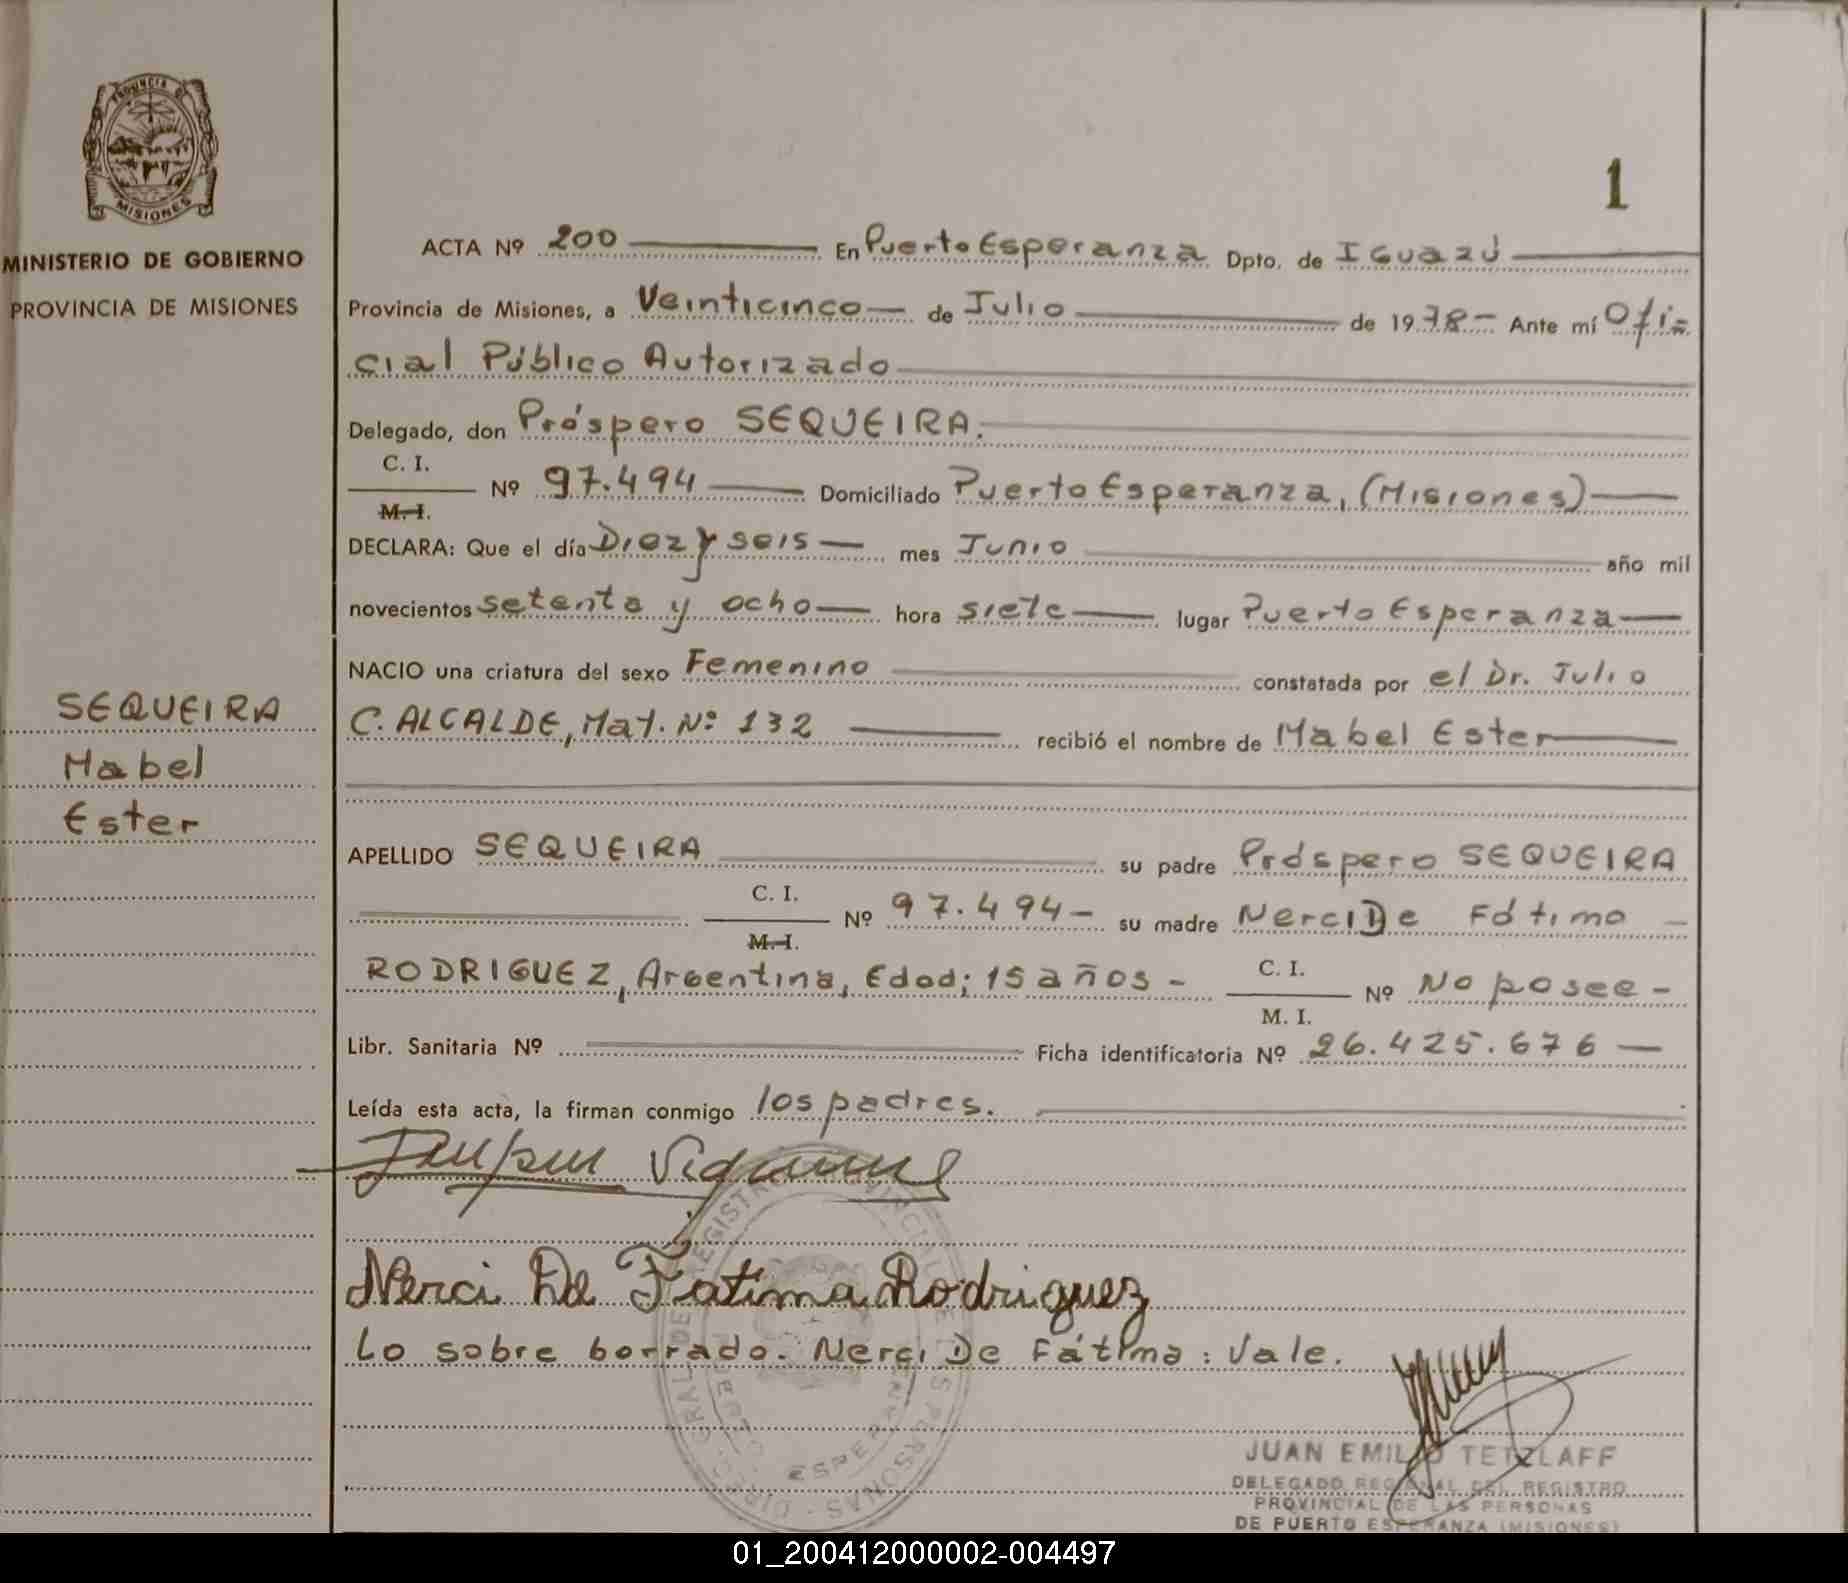 PROVINCIA DE
MISIONES
MINISTERIO DE GOBIERNO
PROVINCIA DE MISIONES
SEQUEIRA
Mabel
Ester
1
ACTA Nº 200 En Puerto Esperanza Dpto. de IGuazú
Provincia de Misiones, a Veinticinco de Julio de 1978 Ante mí Ofi=
cial Público Autorizado
Delegado, don Próspero SEQUEIRA.
C. I.
Nº 97.494 Domiciliado Puerto Esperanza, (Misiones)
M. I.
DECLARA: Que el día Diez y seis mes Junio año mil
novecientos setenta y ocho hora siete lugar Puerto Esperanza
NACIO una criatura del sexo Femenino constatada por el Dr. Julio
C. ALCALDE, Mat. Nº 132 recibió el nombre de Mabel Ester
APELLIDO SEQUEIRA su padre Próspero SEQUEIRA
C. I.
Nº 97.494- su madre Nerci De Fátima
M. I.
RODRIGUEZ, Argentina, Edad; 15 años - C. I. Nº No posee -
M. I.
Libr. Sanitaria Nº Ficha identificatoria Nº 26.425.676
Leída esta acta, la firman conmigo los padres.
Nerci De Fatima Rodriguez
Lo sobre borrado. Nerci De Fátima: Vale.
JUAN EMILIO TETZLAFF
DELEGADO REGIONAL DEL REGISTRO
PROVINCIAL DE LAS PERSONAS
DE PUERTO ESPERANZA (MISIONES)
01_200412000002-004497